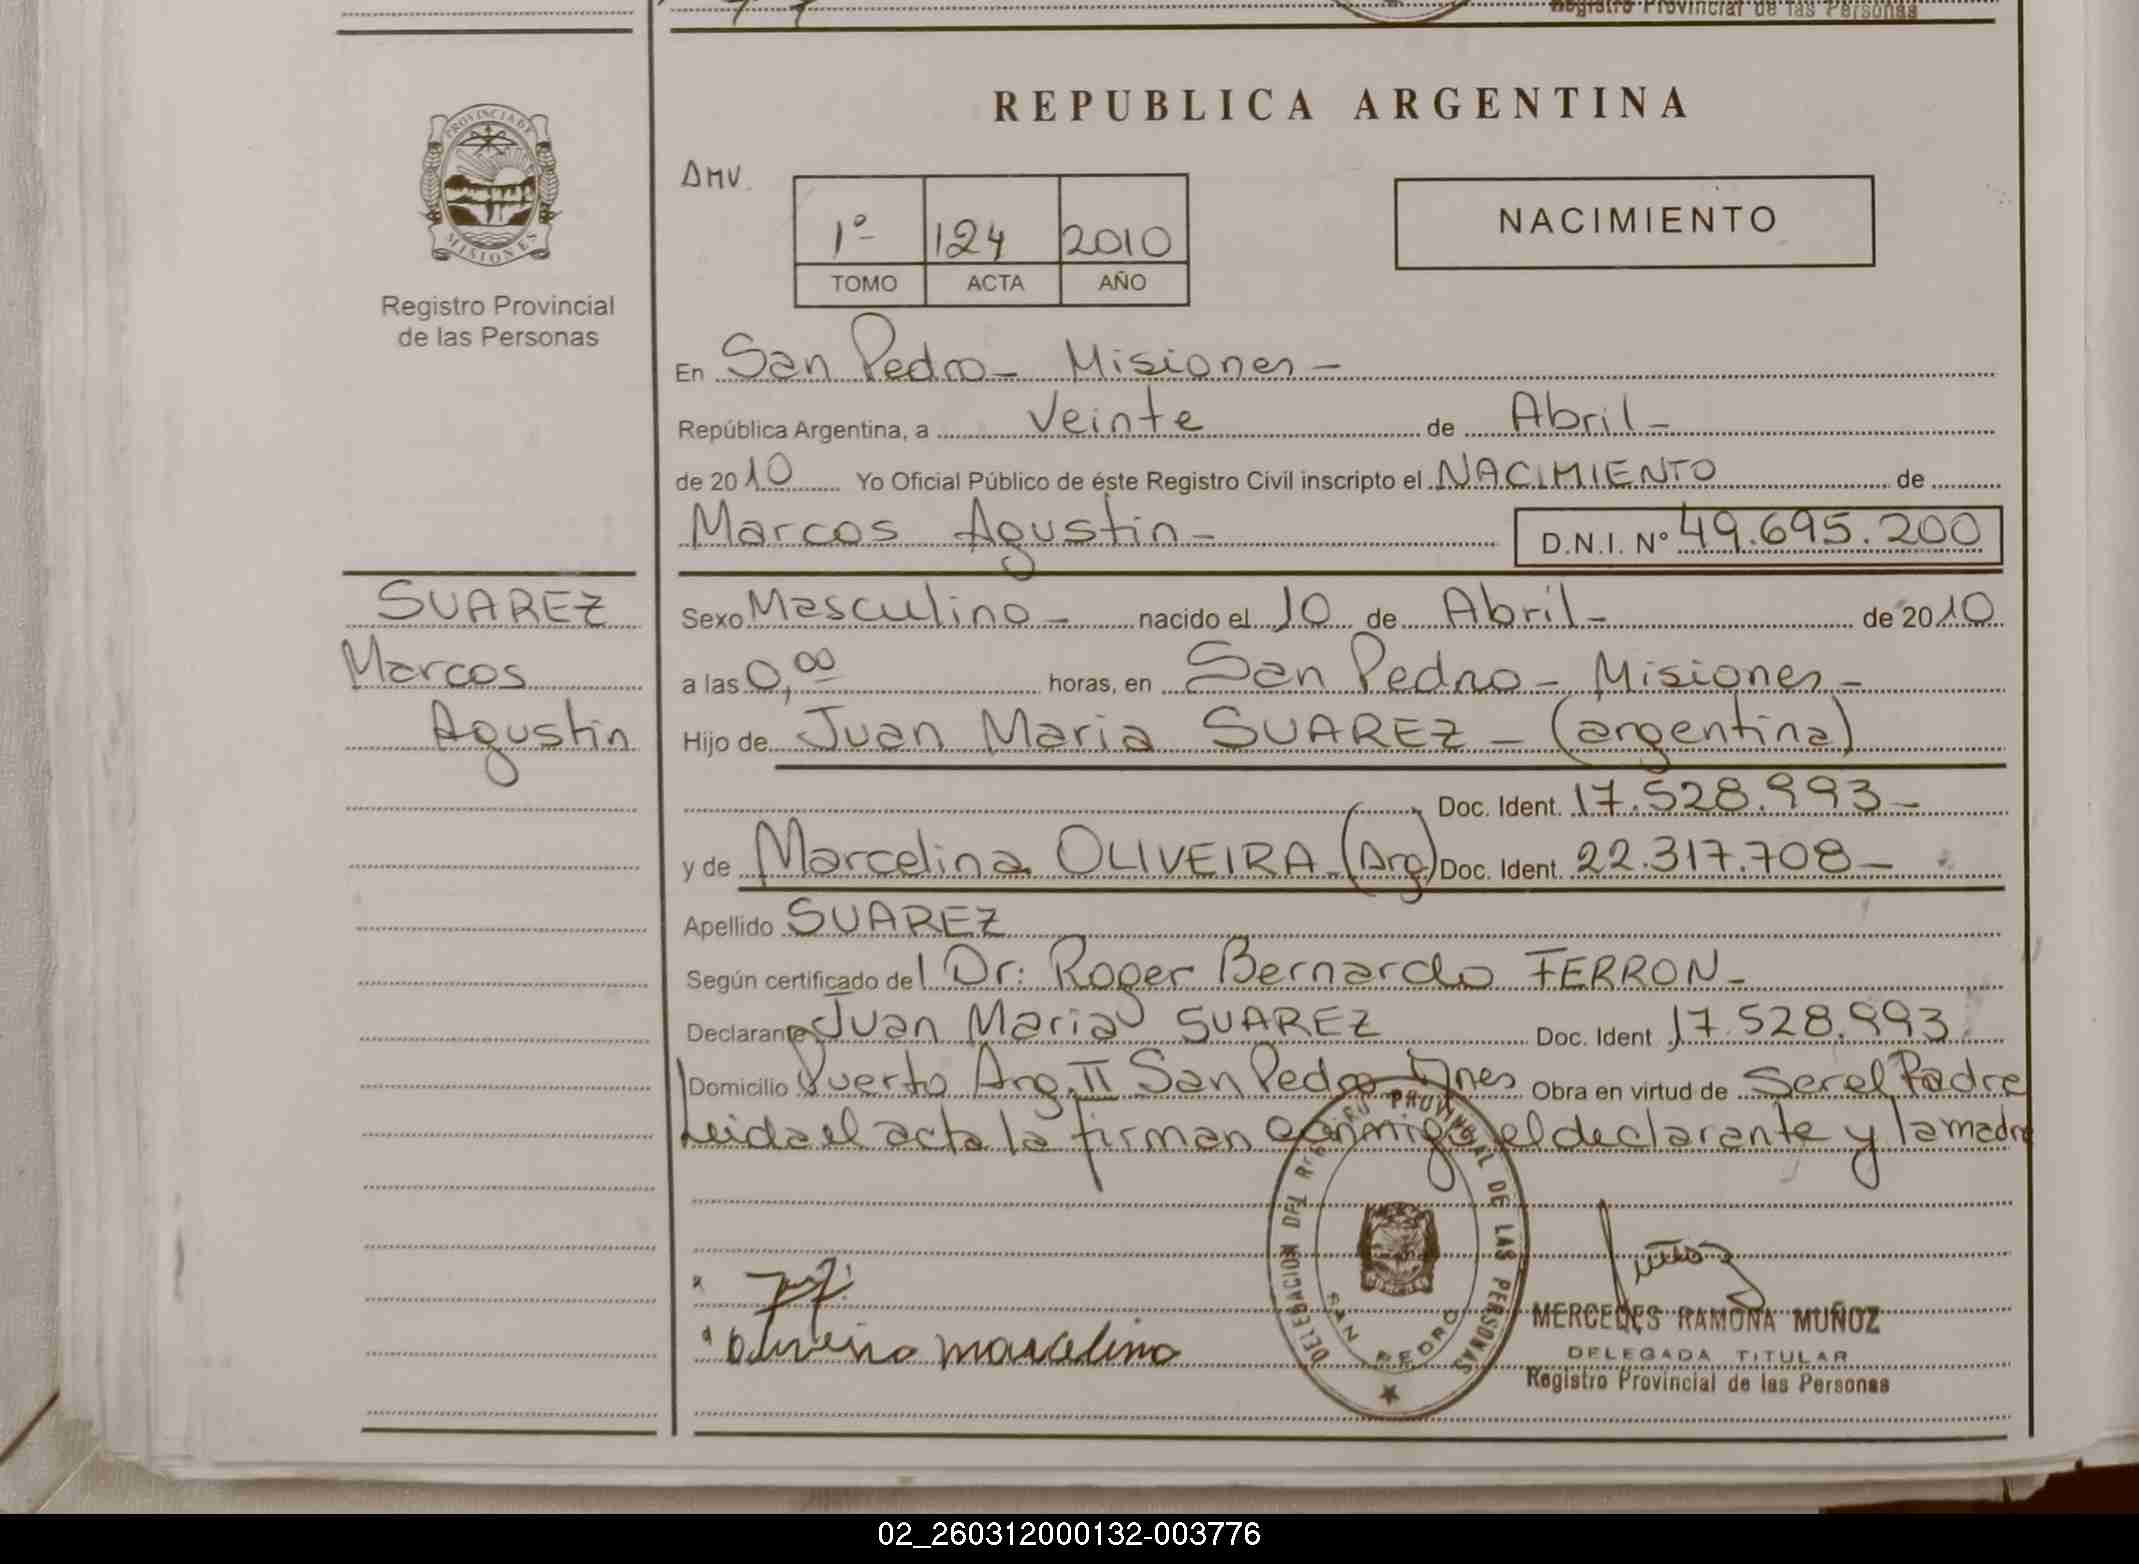 Registro Provincial de las Personas
REPUBLICA ARGENTINA
PROVINCIA DE
MISIONES
Registro Provincial
de las Personas
DMV.
1º 124 2010
TOMO ACTA AÑO
NACIMIENTO
En San Pedro - Misiones -
República Argentina, a Veinte de Abril -
de 2010 Yo Oficial Público de éste Registro Civil inscripto el NACIMIENTO de
Marcos Agustin - D.N.I. Nº 49.695.200
SUAREZ
Marcos
Agustin
Sexo Masculino - nacido el 10 de Abril - de 2010
a las 0,00 horas, en San Pedro - Misiones -
Hijo de Juan Maria SUAREZ - (argentina)
Doc. Ident. 17.528.993 -
y de Marcelina OLIVEIRA - (Arg) Doc. Ident. 22.317.708 -
Apellido SUAREZ
Según certificado del Dr: Roger Bernardo FERRON -
Declarante Juan Maria SUAREZ Doc. Ident 17.528.993
Domicilio Puerto Arg. II San Pedro Mnes Obra en virtud de Ser el Padre
Leida el acta la firman conmigo el declarante y la madre
DELEGACION DEL REGISTRO PROVINCIAL DE LAS PERSONAS
SAN PEDRO
oliveira marcelina
MERCEDES RAMONA MUÑOZ
DELEGADA TITULAR
Registro Provincial de las Personas
02_260312000132-003776